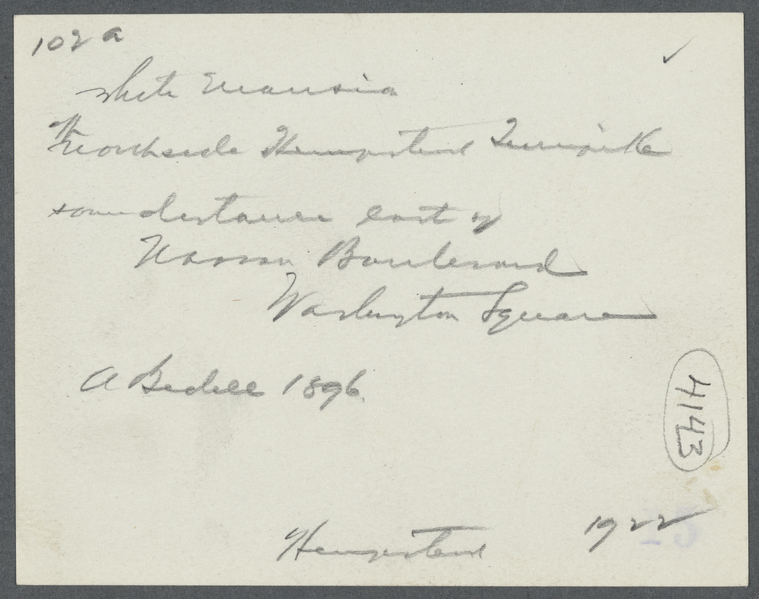 102a
White Mansion
Northside Hempstead Turnpike
some distance east of
Nassau Boulevard
Washington Square
A Bedell 1896
4143
Hempstead 1922